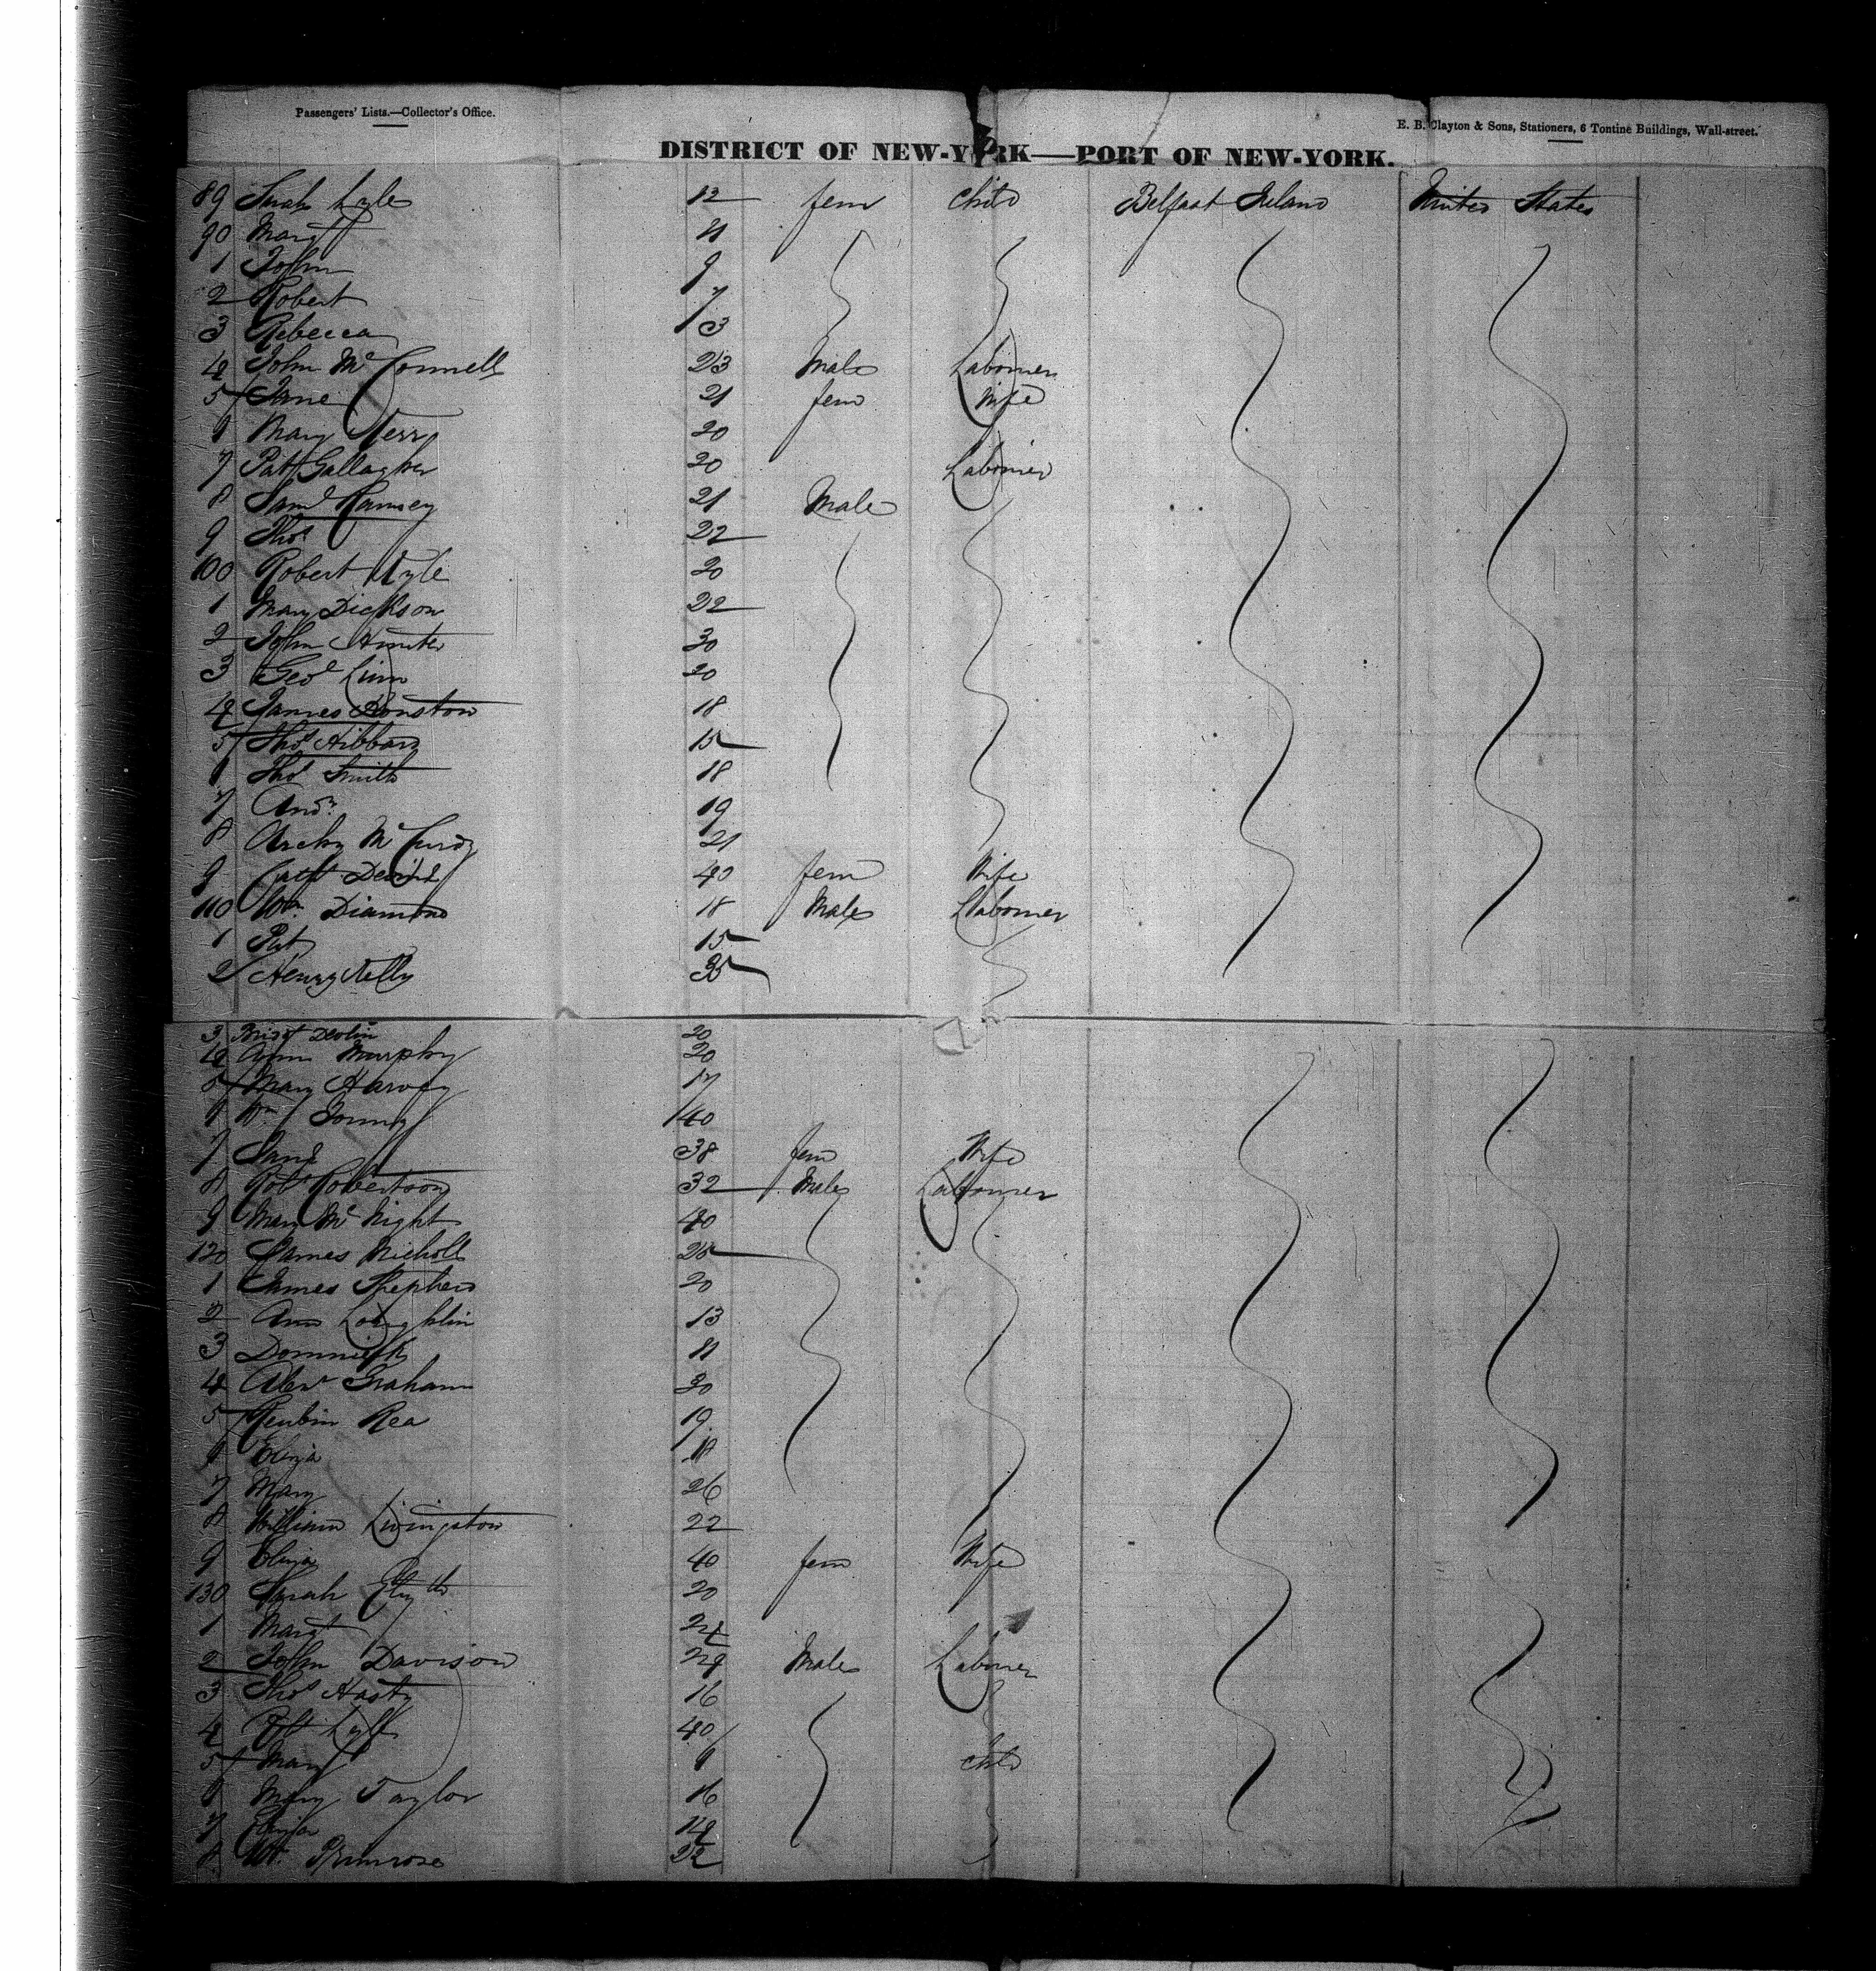 Passengers' Lists.—Collector's Office.
E. B. Clayton & Sons, Stationers, 6 Tontine Buildings, Wall-street.
DISTRICT OF NEW-YORK—PORT OF NEW-YORK.
89 Sarah Lyle 12 fem Child Belfast Ireland United States
90 Margt 11
1 John 9
2 Robert 7
3 Rebecca 3
4 John McConnell 23 Male Labourer
5 Jane 21 fem Wife
6 Mary Kerr 20
7 Pat Gallagher 20 Labourer
8 Saml Ramsey 21 Male
9 Thos 22
100 Robert Kyle 20
1 Mary Dickson 22
2 John Hunter 30
3 Geo Linn 20
4 James Houston 18
5 Thos Hibbard 15
6 Thos Smith 18
7 Andw 19
8 Archy McCurdy 21
9 Cath 40 fem Wife
110 Wm Diamond 18 Male Labourer
1 Pat 15
2 Henry Kelly 35
3 Bridgt Devlin 20
4 Ann Murphy 20
5 Mary Harvey 17
6 Wm Young 40
7 Jane 38 fem Wife
8 Robt Robertson 32 Male Labourer
9 Mary McNight 40
120 James Nicholl 25
1 James Shepherd 20
2 Ann Loughlin 13
3 Dominick 11
4 Alexr Graham 30
5 Reubin Rea 19
6 Eliza 18
7 Mary 26
8 William Livingston 22
9 Eliza 40 fem Wife
130 Sarah 20
1 Margt 24
2 John Davison 24 Male Labourer
3 Thos Hasty 16
4 Robt Lyle 40
5 Mary 6 Child
6 Mary Taylor 16
7 Eliza 14
8 Wm Primrose 22